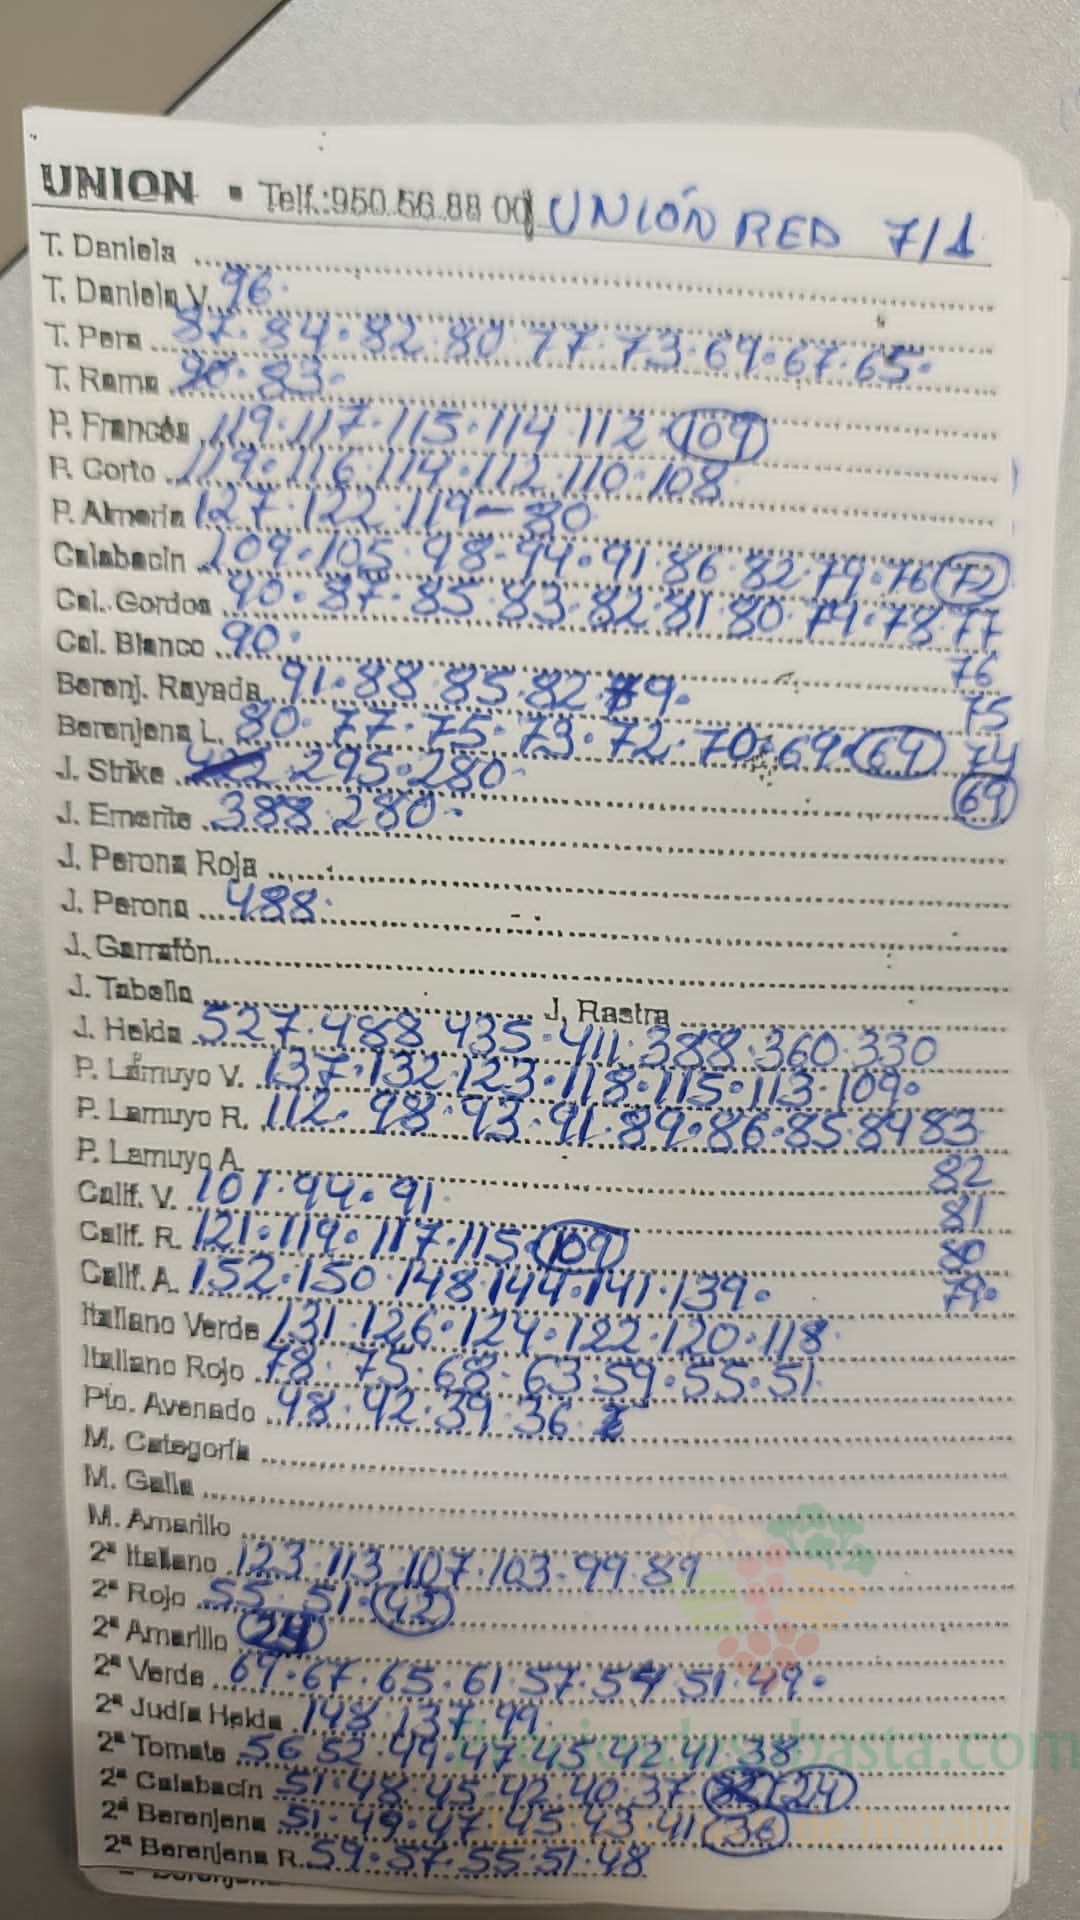 UNION • Telf.:950 56 88 00 UNIÓN RED 7/1
T. Daniela
T. Daniela V. 96.
T. Pera 87.84.82.80 77.73.69.67.65.
T. Rama 90.83.
P. Francés 119.117.115.114 112.109
P. Corto 119.116.114.112.110.108
P. Almería 127.122.119-80
Calabacín 109.105.98-94.91.86.82.79.76 72
Cal. Gordos 90.87.85.83.82.81.80.79.78.77
76
Cal. Blanco 90.
75
Berenj. Rayada 91.88.85.82 79.
74
Berenjena L. 80.77.75.73.72.70.69.69
69
J. Strike 295.280
J. Emerite 388.280.
J. Perona Roja
J. Perona 488.
J. Garrafón
J. Tabella J. Rastra
J. Helda 527.488 435.411.388.360.330
P. Lamuyo V. 137.132.123.118.115.113.109.
P. Lamuyo R. 112.98.93.91.89.86.85.84 83
82
P. Lamuyo A.
81
Calif. V. 101.94.91.
80
Calif. R. 121.119.117.115.109
79.
Calif. A. 152.150.148.144.141.139.
Italiano Verde 131.126.124.122.120.118
Italiano Rojo 78.75.68.63.59.55.51.
Pto. Avenado 48.42.39.36
M. Categoría
M. Galia
M. Amarillo
2ª Italiano 123.113.107.103.99.89
2ª Rojo 55.51.42
2ª Amarillo 24
2ª Verde 69.67.65.61.57.54 51.49.
2ª Judía Helda 148.137.99.
2ª Tomate 56 52.49.47.45.42.41.38
2ª Calabacín 51.48.45.42.40.37 24
2ª Berenjena 51.49.47.45.43.41.36
2ª Berenjena R. 59.57.55.51.48